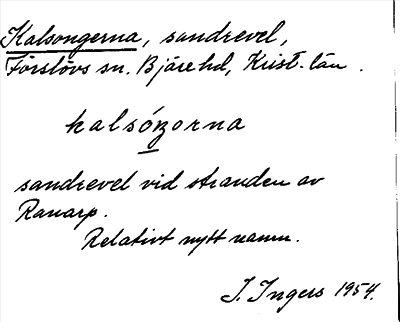 Kalsongerna, sandrevel,
Förslövs sn. Bjäre hd, Krist. län.
kalsóŋorna
sandrevel vid stranden av
Ranarp.
Relativt nytt namn.
I. Ingers 1954.